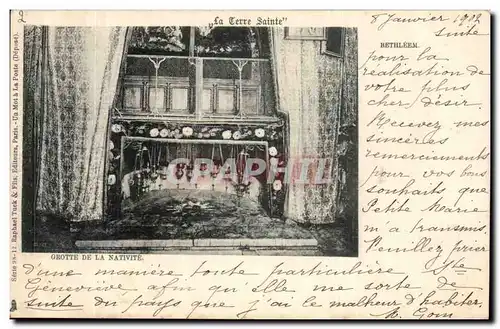 2
„La Terre Sainte"
8 Janvier 1902
suite
BETHLÉEM.
pour la
réalisation de
votre plus
cher désir.
Recevez mes
sincères
remerciements
pour vos bons
souhaits que
Petite Marie
m'a transmis.
Veuillez prier
Ste
Geneviève afin qu'elle me sorte de
D'une manière toute particulière
suite du pays que j'ai le malheur d'habiter,
CARTHAGRAPH
GROTTE DE LA NATIVITÉ.
Raphael Tuck & Fils, Editeurs, Paris.-Un Mot à La Poste (Déposé).